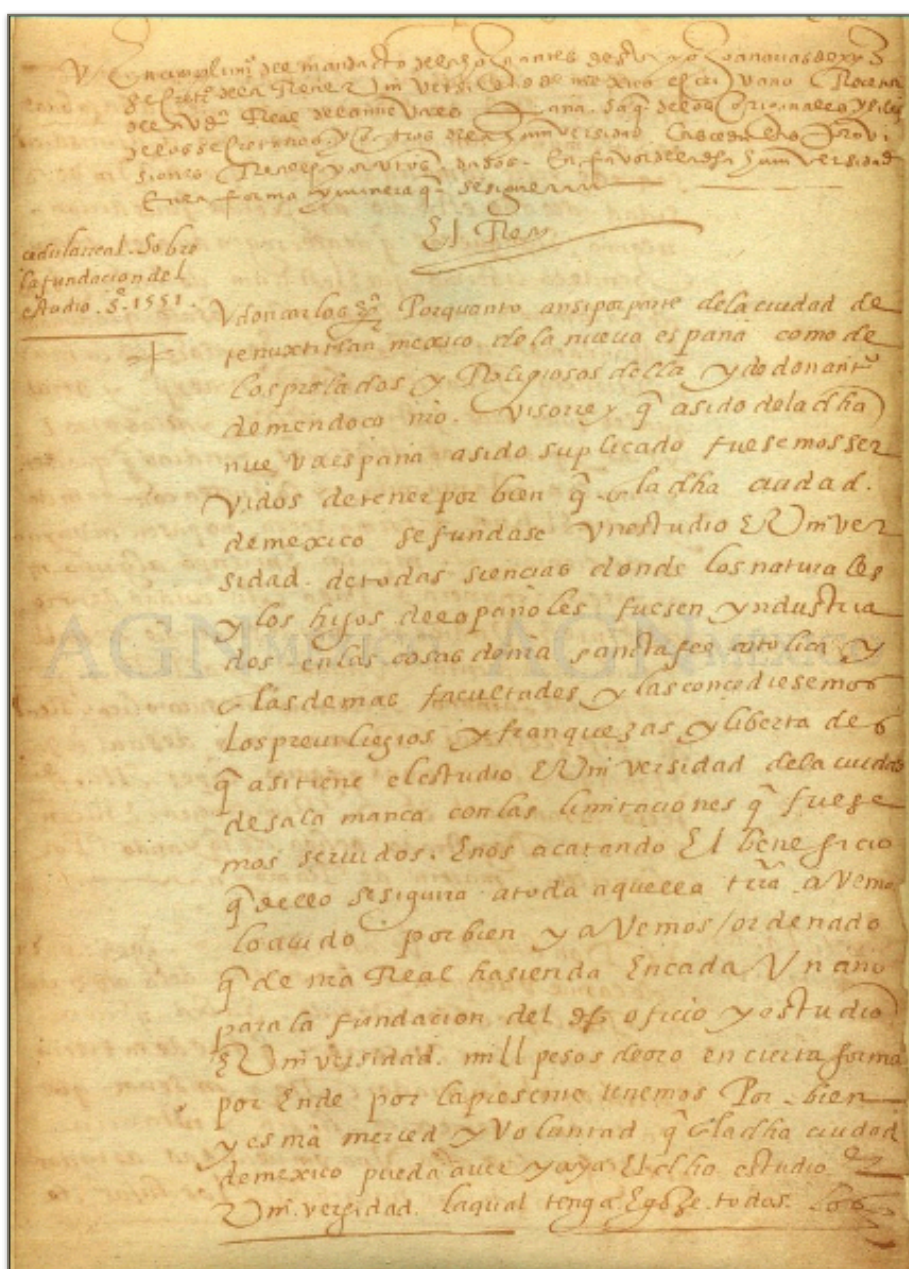 en cumplimiº del mandamiº
secretº dela Real Universidad de mexico escrivano
del Audª Real dela nueva españa. saq. delos originales y
delos secretarios. y claustros dela dha Universidad
siones Reales y autos dados. En favor dela dha Universidad
En la forma y manera q. se sigueran
El Rey
cedula real. Sobre
la fundacion del
estudio. Sª. 1551.
don carlos &ª Porquanto ansi por parte dela ciudad de
tenuxtitlan mexico dela nueva espana como de
los prelados y Religiosos della y de don antº
de mendoça nro. Visorrey q asido dela dha
nueva espana asido suplicado fuesemos ser
vidos de tener por bien q en la dha ciudad.
de mexico se fundase Un estudio E Univer
sidad. de todas siencias donde los naturales
y los hijos de españoles fuesen yndustria
dos en las cosas de nra sancta fee catolica y
en las demas facultades y las concediesemos
los previlegios y franquezas y libertades
q asi tiene el estudio E Universidad dela ciudad
de sala manca con las limitaciones q fuese
mos servidos. Enos acatando El beneficio
q dello se siguira atoda aquella trra avemo
lo avido por bien y avemos / ordenado
q de nra Real hasienda Encada Un año
para la fundacion del dho oficio y estudio
E Universidad. mill pesos de oro en cierta forma
por Ende por la presente tenemos Por bien
y es nra merced y Voluntad q en la dha ciudad
de mexico pueda aver y aya El dho estudio e
Universidad. laqual tenga E goze. todos. los
AGN MÉXICO AGN MÉXICO